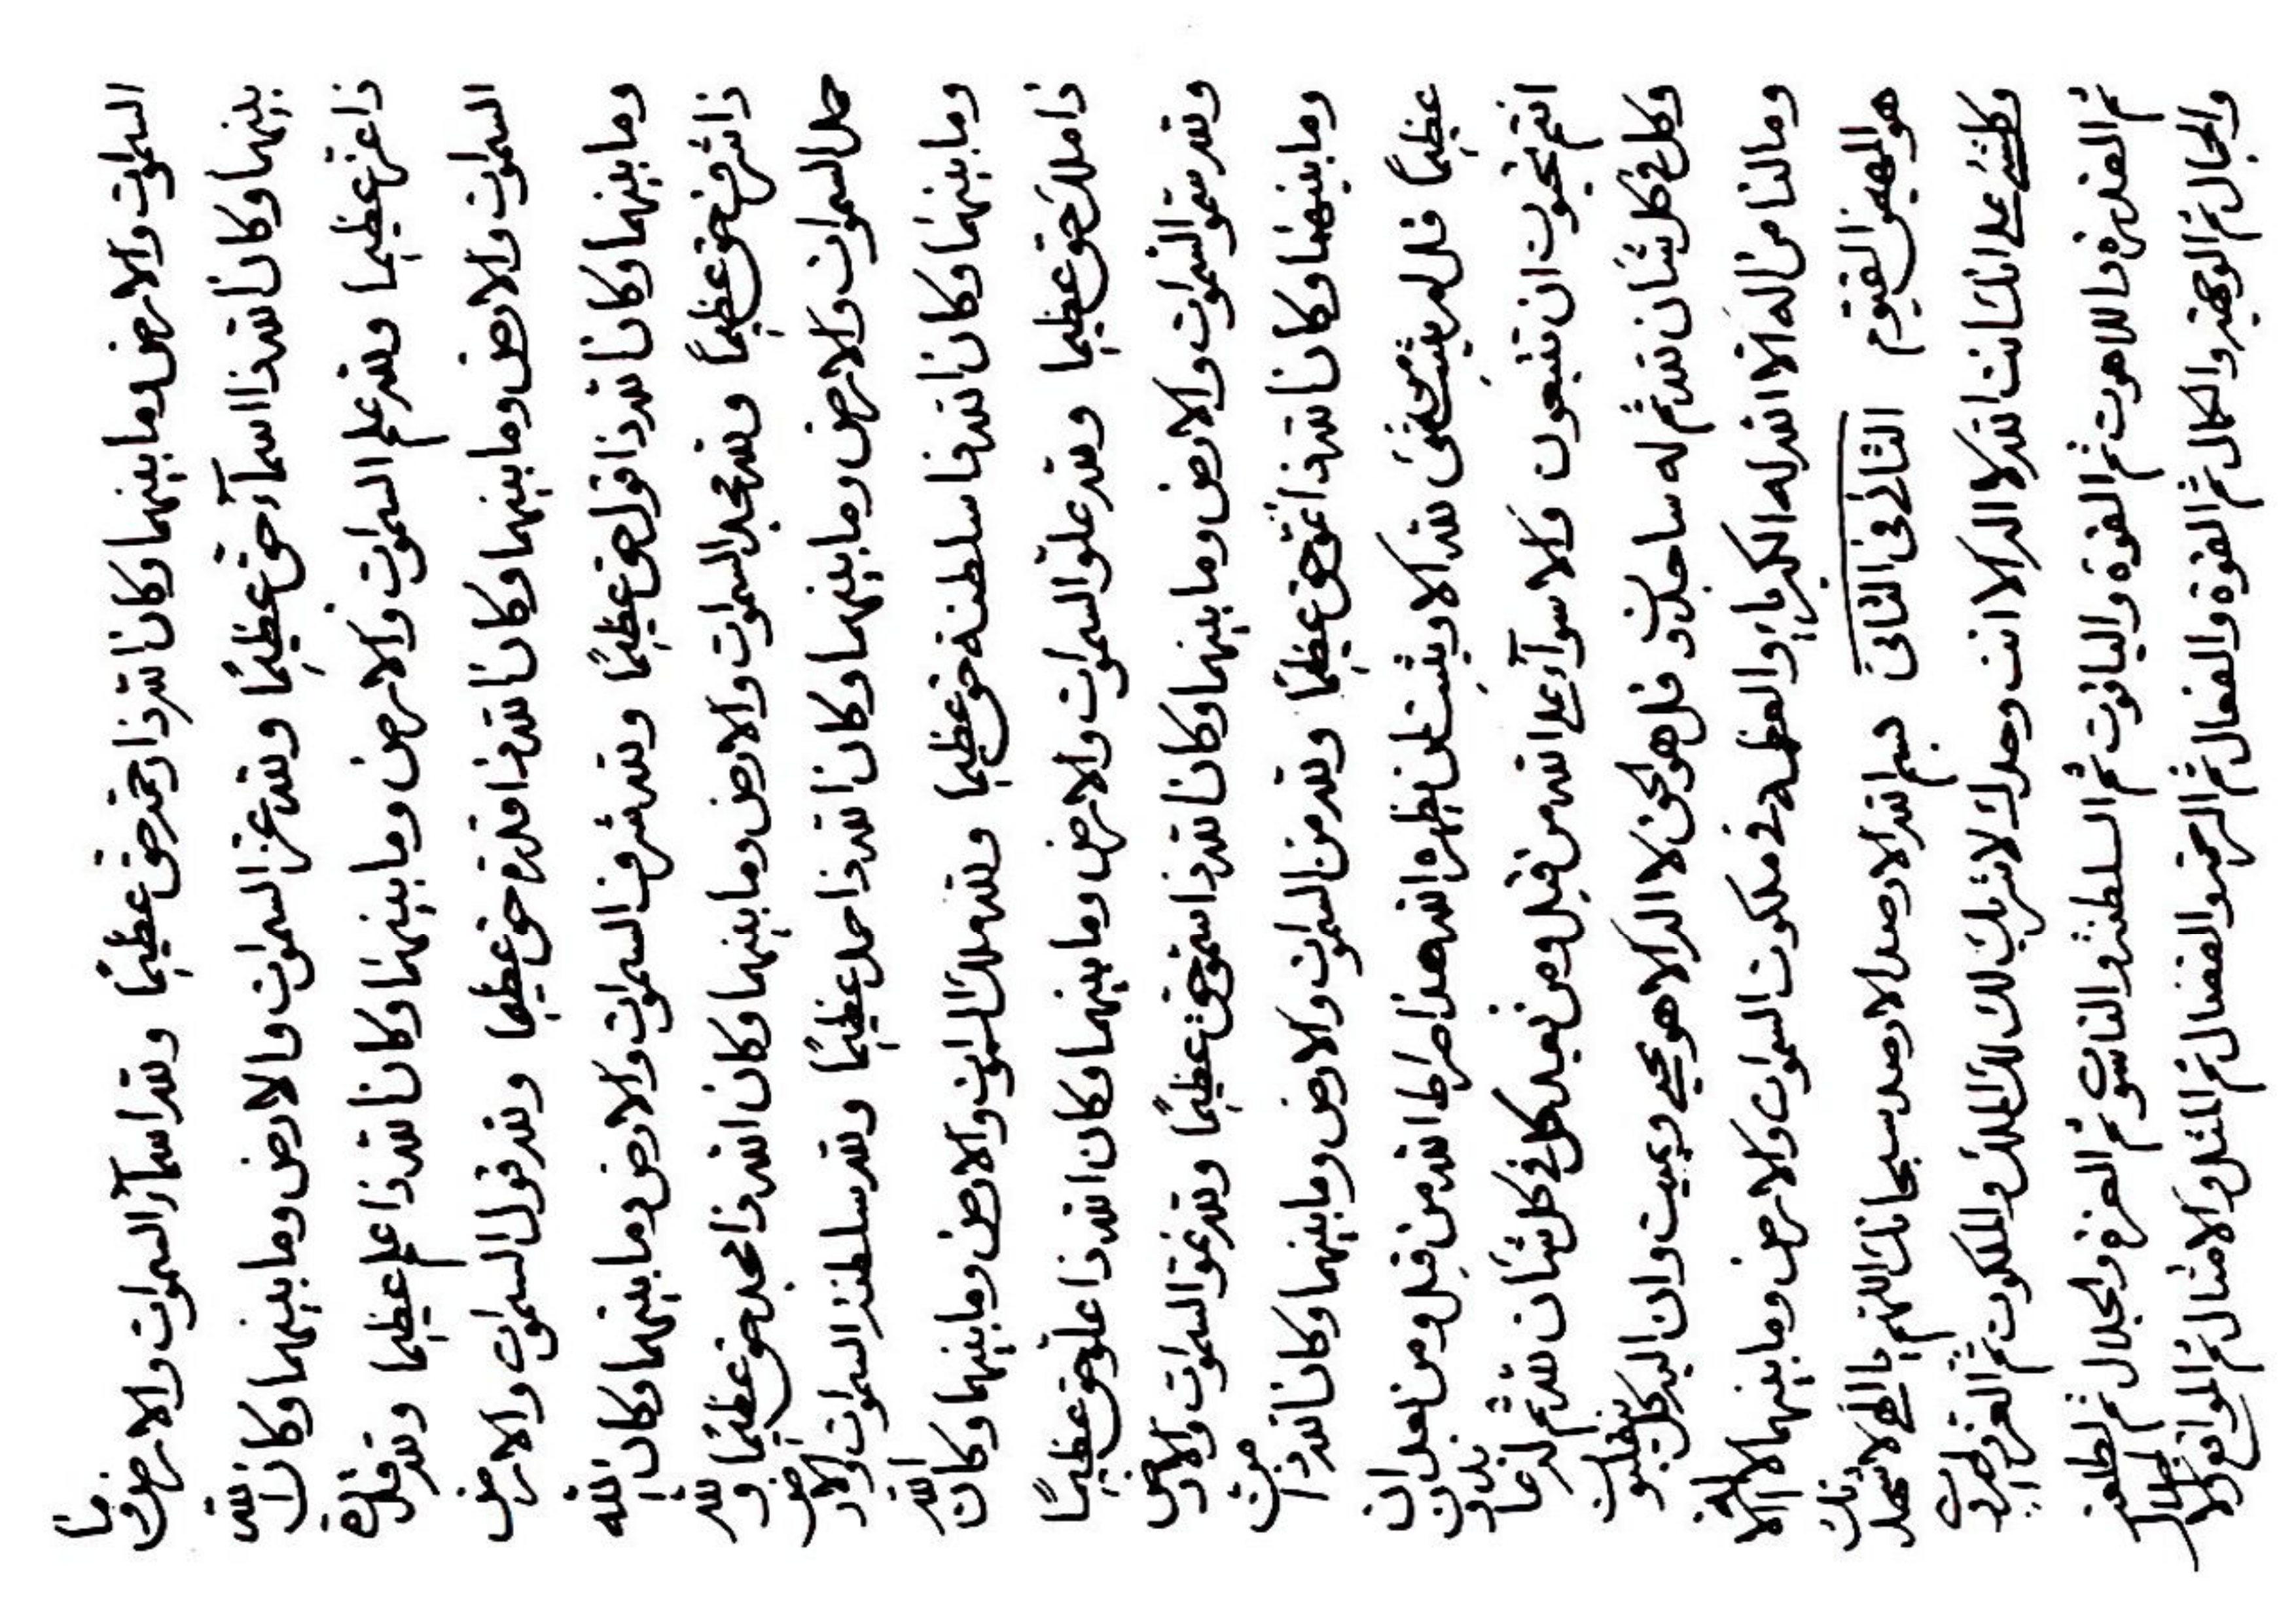 السموات والارض وما بينهما وكان الله ذا رحمة حق عظيمًا ولله اسمآء السموات والارض وما
بينهما وكان الله ذا اسمآء حق عظيمًا ولله عز السموات والارض وما بينهما وكان الله
ذا عزة عظيما ولله علم السموات والارض وما بينهما وكان الله ذا علم عظيما ولله قدرة
السموات والارض وما بينهما وكان الله ذا قدرة حق عظيما ولله قول السموات والارض
وما بينهما وكان الله ذا قول حق عظيمًا ولله شرف السموات والارض وما بينهما وكان الله
ذا شرف حق عظيمًا ولله مجد السموات والارض وما بينهما وكان الله ذا مجد حق عظيمًا ولله
حمد السموات والارض وما بينهما وكان الله ذا حمد عظيمًا ولله سلطنة السموات والارض
وما بينهما وكان الله ذا سلطنة حق عظيما ولله ملك السموات والارض وما بينهما وكان الله
ذا ملك حق عظيما ولله علو السموات والارض وما بينهما وكان الله ذا علو حق عظيمًا
ولله سمو السموات والارض وما بينهما وكان الله ذا سمو حق عظيمًا ولله نمو السموات والارض
وما بينهما وكان الله ذا نمو حق عظيمًا ولله من السموات والارض وما بينهما وكان الله ذا من
عظيمًا قل لم يثبت حق لله الا ويثبت لمن يظهره الله هذا صراط الله من قبل ومن بعد ان
انتم تحبون ان تتبعون والا سوآء على الله من قبل ومن بعد كل في كل شأن لله ثم له عابدون
وكل في كل شأن لله ثم له ساجدون قل هو الحق لا اله الا هو يحيي ويميت وان اليه كل ينقلبون
وما لنا من اله الا الله له الكبرياء والعظمة في ملكوت السموات والارض وما بينهما لا اله الا
هو المهيمن القيوم الثاني في الثاني بسم الله الاوحد الاوحد سبحانك اللهم يا الهي لاشهدنك
وكلشئ على انك انت الله لا اله الا انت وحدك لا شريك لك لك الملك والملكوت ثم العز والجبروت
ثم القدرة واللاهوت ثم القوة والياقوت ثم السلطنة والناسوت ثم العزة والجلال ثم الطلعة
والجمال ثم الوجهة والكمال ثم القوة والفعال ثم الرحمة والفضال ثم المثل والامثال ثم المواقع